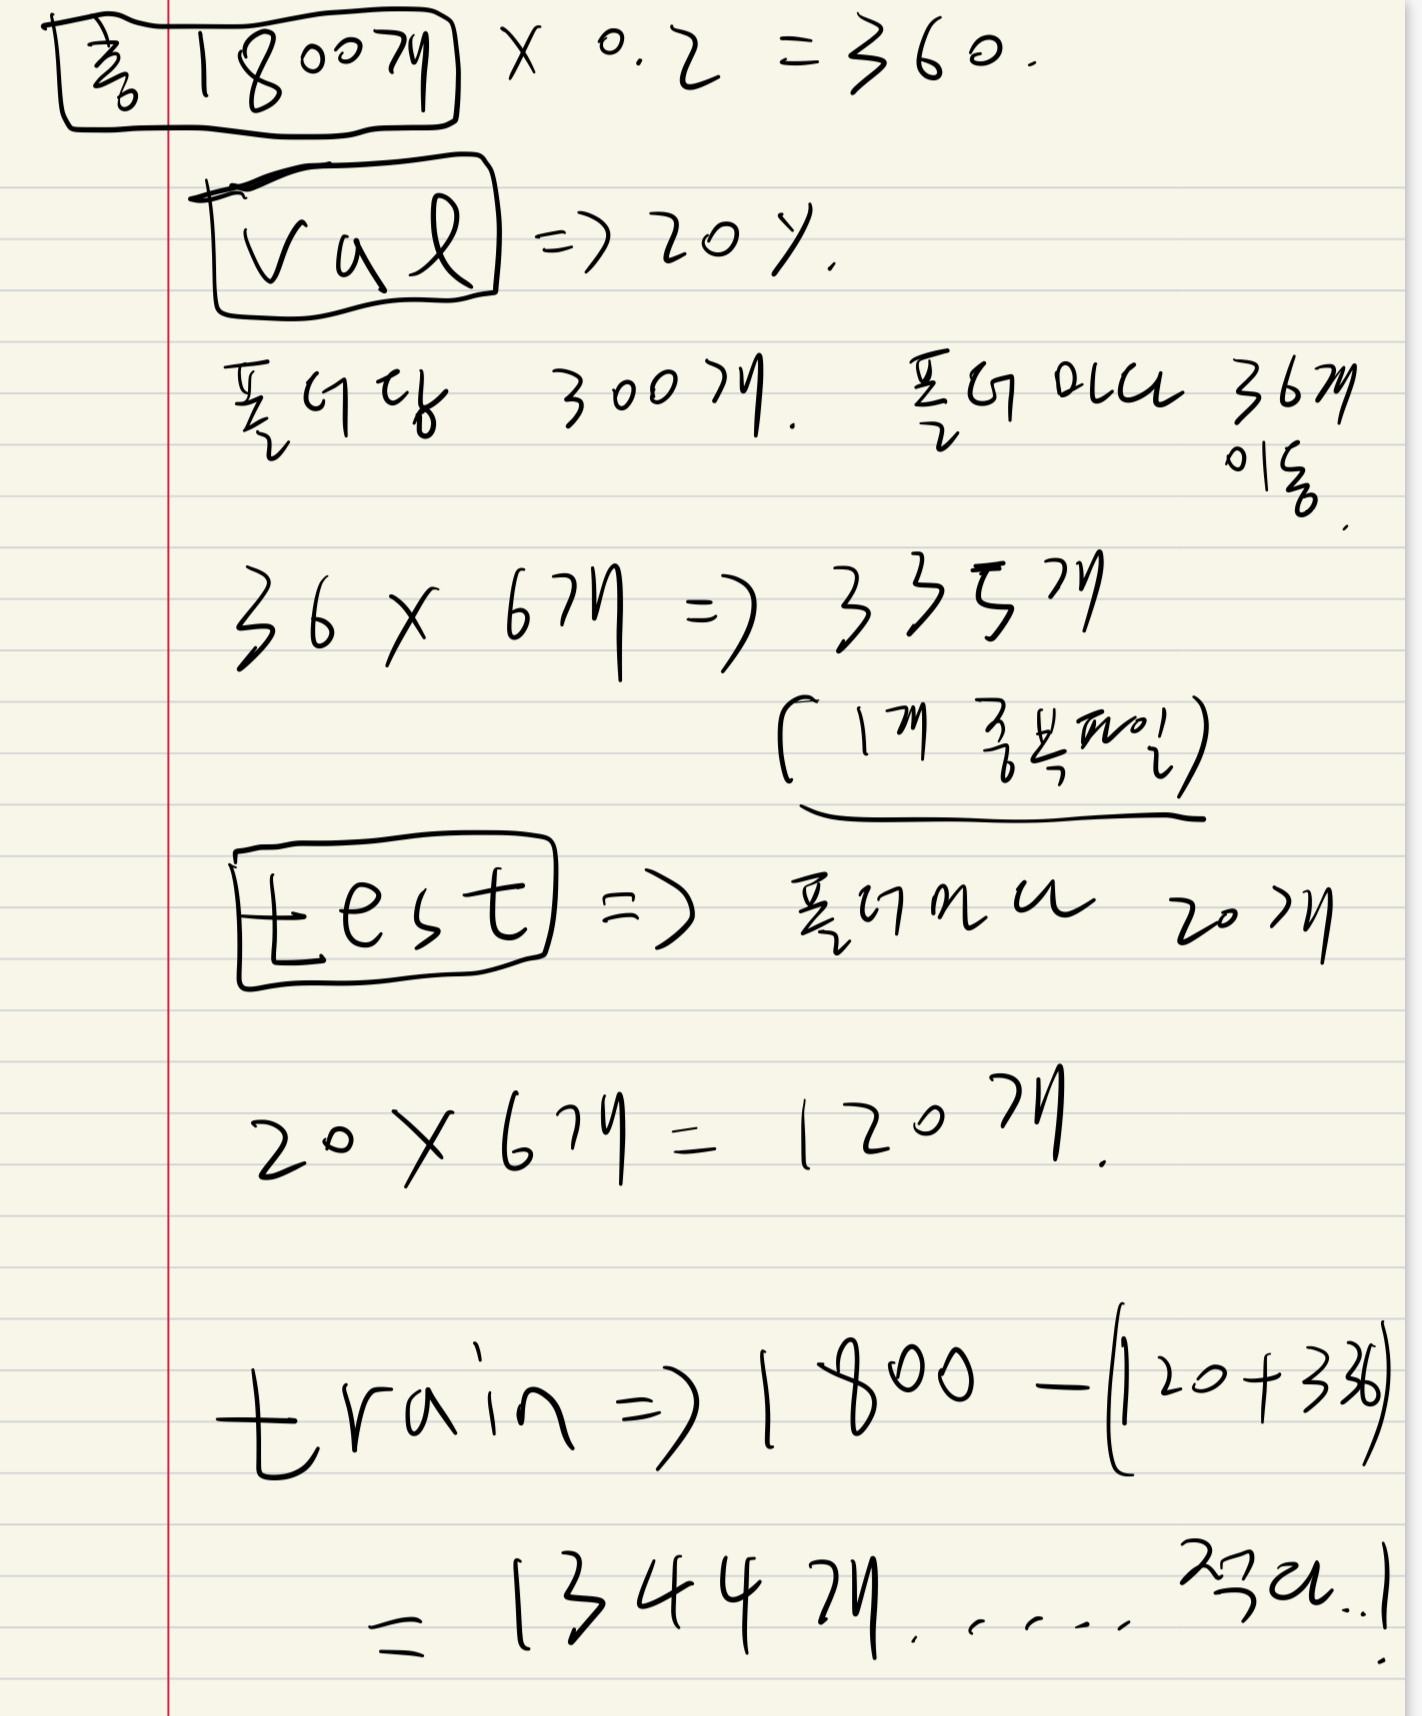 총 1800개 × 0.2 = 360.
val => 20%.
폴더당 300개. 폴더마다 36개
이동.
36 × 6개 => 335개
(1개 중복파일)
test => 폴더마다 20개
20 × 6개 = 120개.
train => 1800 - (120+336)
= 1344개. .... 작다..!